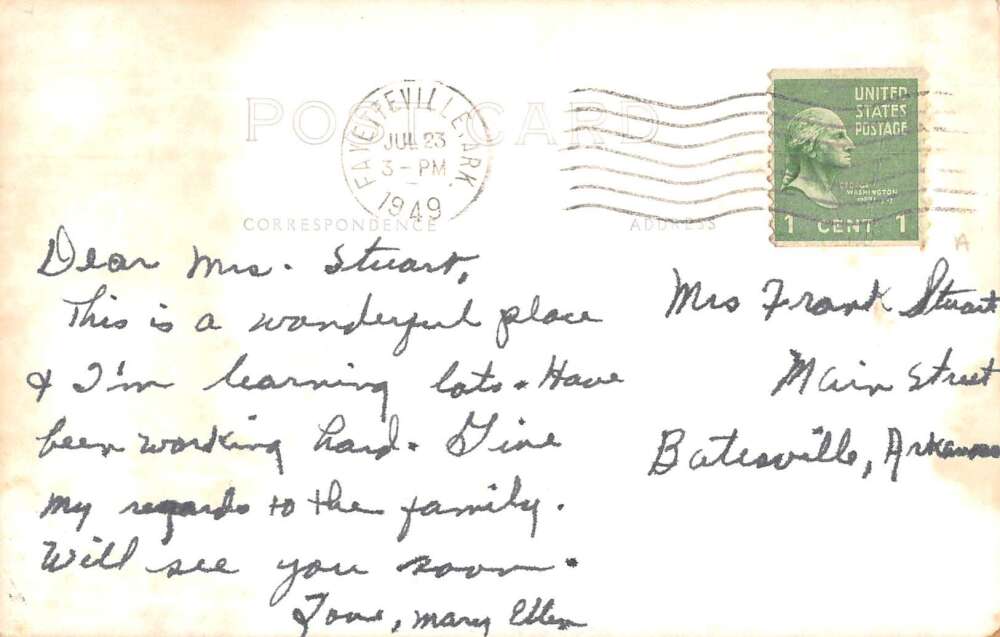 POST CARD
FAYETTEVILLE, ARK.
JUL 23
3 - PM
1949
UNITED
STATES
POSTAGE
GEORGE
WASHINGTON
1 CENT 1
CORRESPONDENCE
ADDRESS
A
Dear Mrs. Stuart,
This is a wonderful place
& I'm learning lots. Have
been working hard. Give
my regards to the family.
Will see you soon.
Love, Mary Ellen
Mrs Frank Stuart
Main Street
Batesville, Arkansas